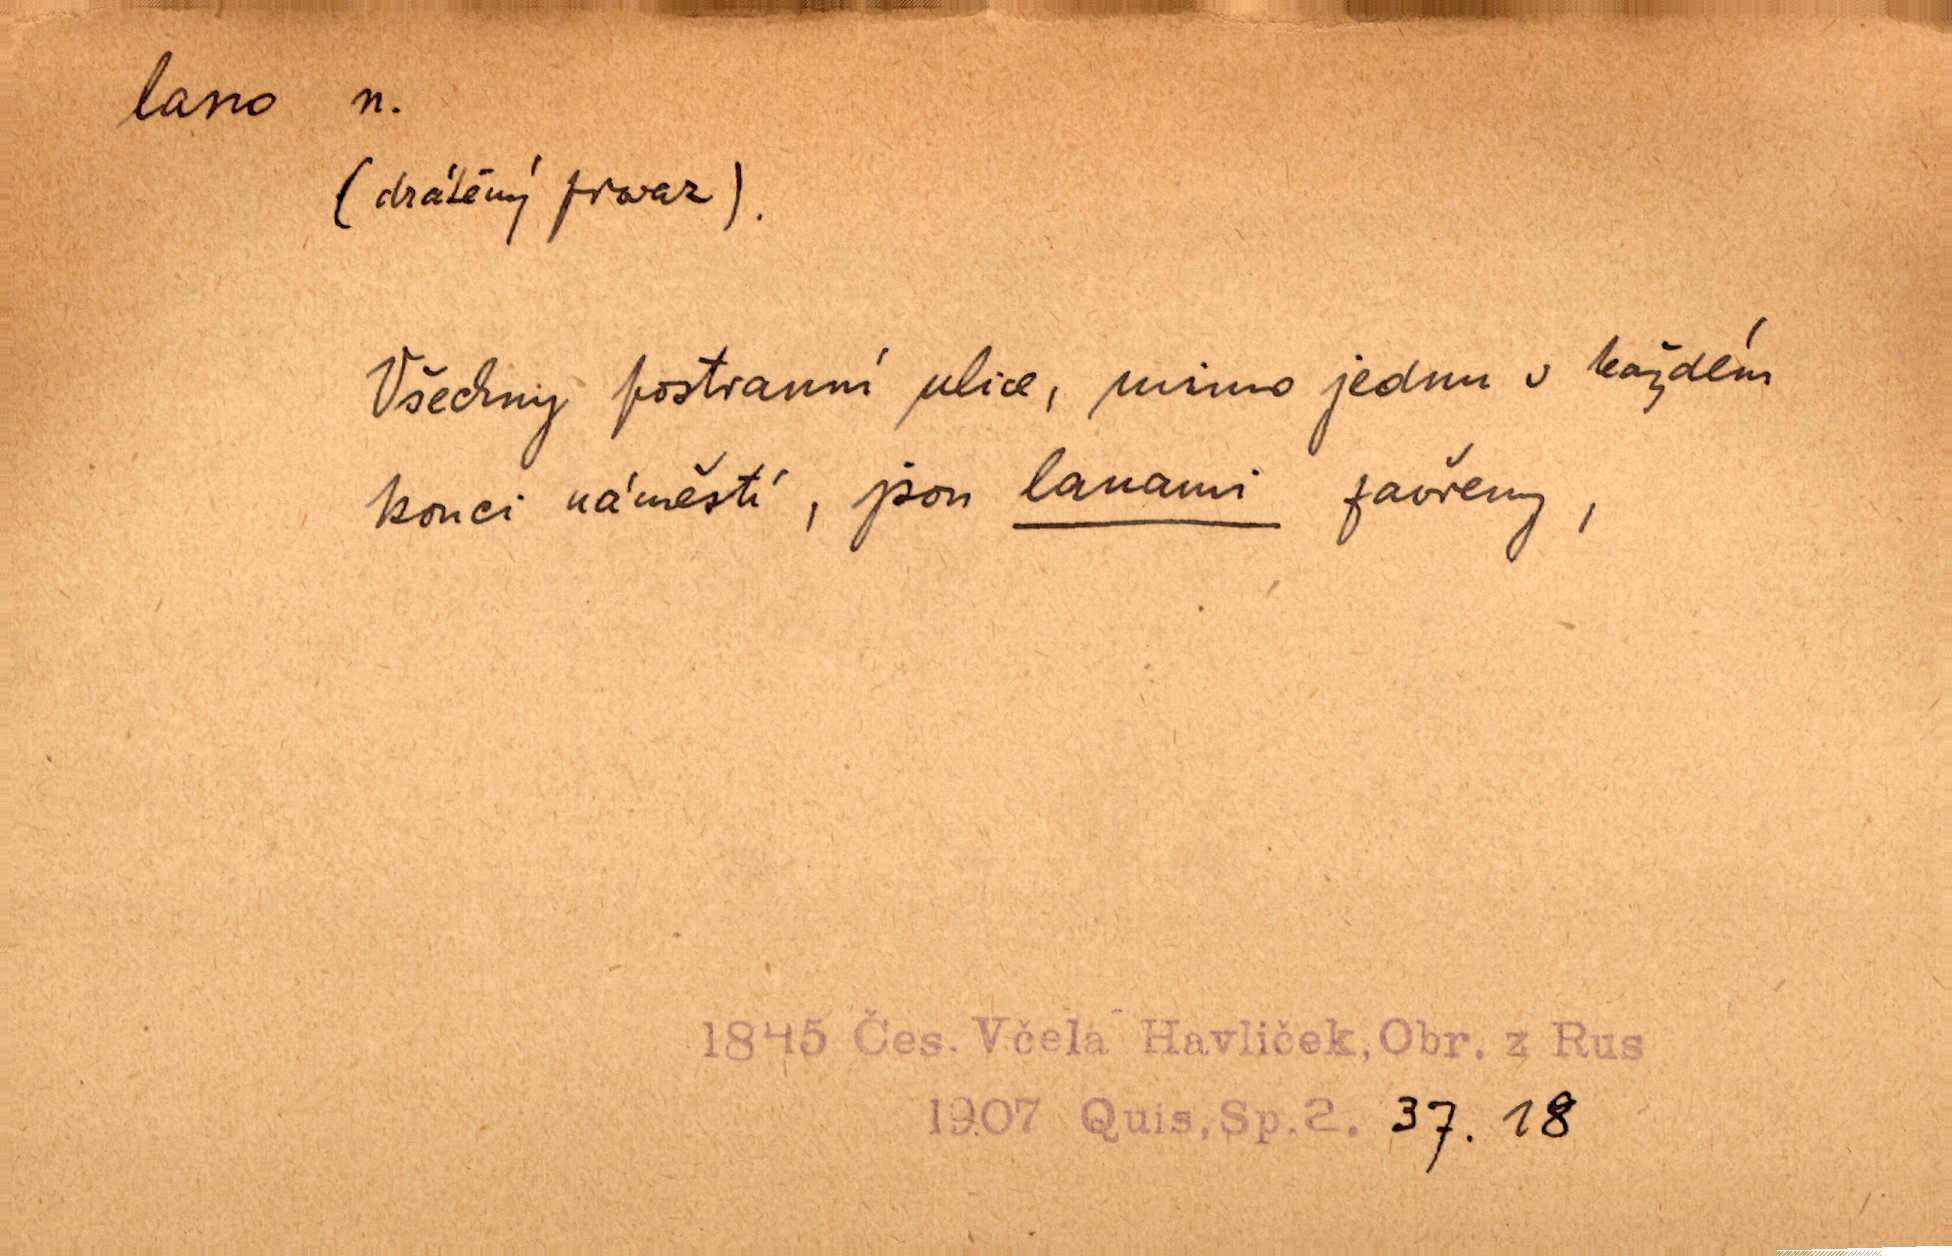 lano n.
(drátěný provaz).
Všechny postranní ulice, mimo jednu v každém
konci náměstí, jsou lanami zavřeny,
1845 Čes. Včela Havlíček, Obr. z Rus
1907 Quis, Sp. 2. 37. 18